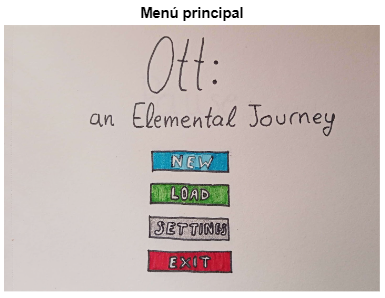 Menú principal
Ott:
an Elemental Journey
NEW
LOAD
SETTINGS
EXIT